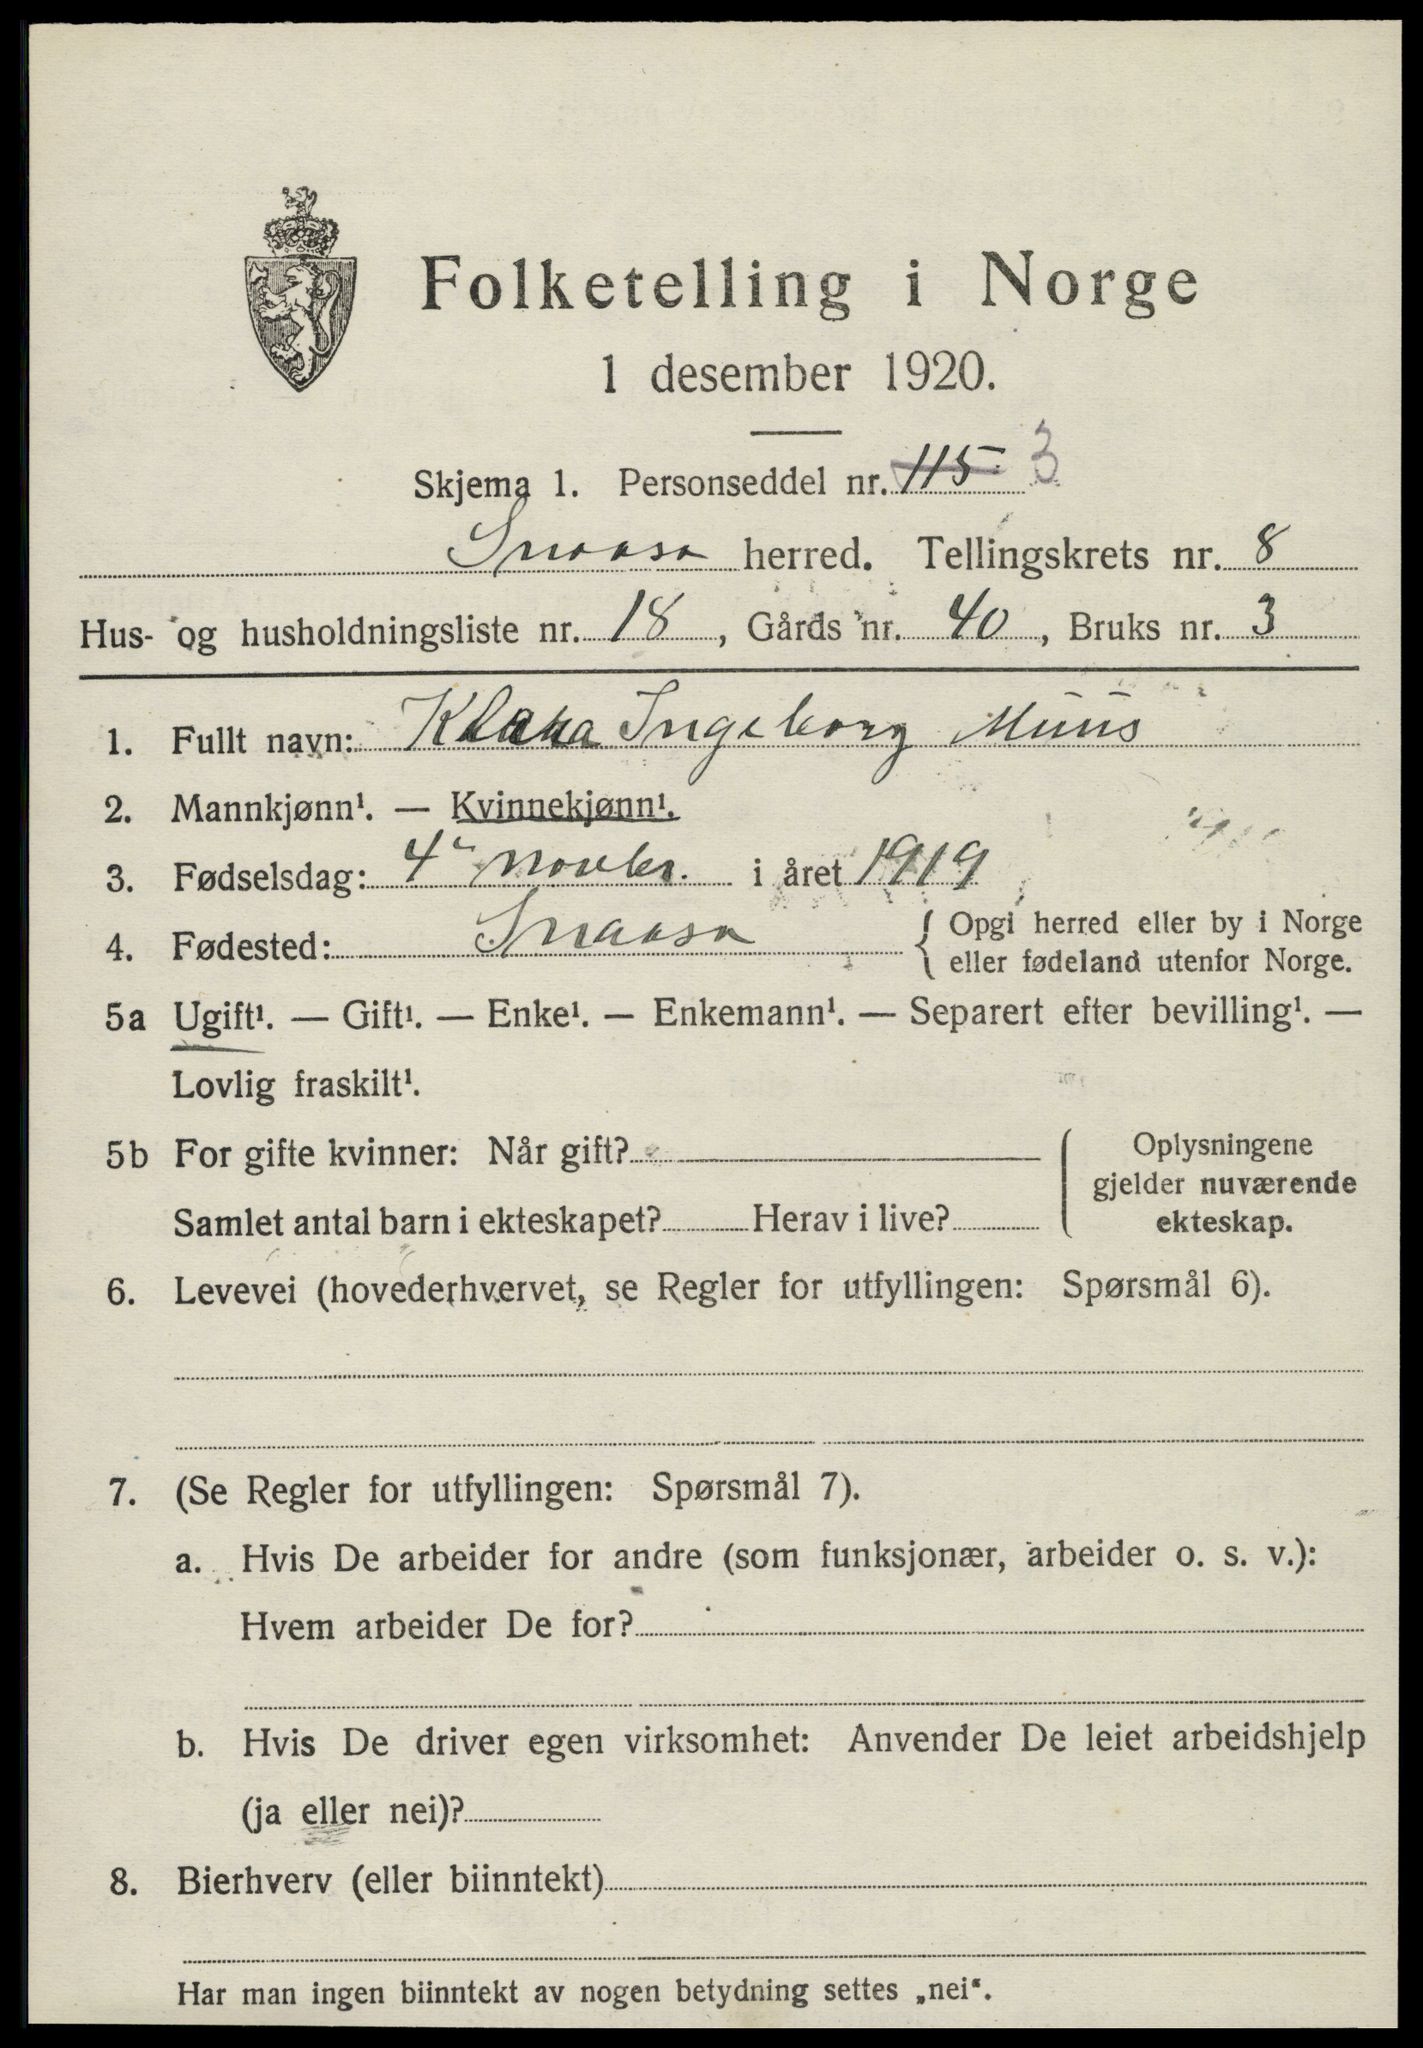 Folketelling i Norge
1 desember 1920.
Skjema 1. Personseddel nr. 115 3
Snaasa herred. Tellingskrets nr. 8
Hus- og husholdningsliste nr. 18, Gårds nr. 40, Bruks nr. 3
1. Fullt navn: Klara Ingeborg Muus
2. Mannkjønn¹. — Kvinnekjønn¹.
3. Fødselsdag: 4de novbr. i året 1919
4. Fødested: Snaasa { Opgi herred eller by i Norge
eller fødeland utenfor Norge.
5a Ugift¹. — Gift¹. — Enke¹. — Enkemann¹. — Separert efter bevilling¹. —
Lovlig fraskilt¹.
5b For gifte kvinner: Når gift?
Samlet antal barn i ekteskapet? Herav i live?
Oplysningene
gjelder nuværende
ekteskap.
6. Levevei (hovederhvervet, se Regler for utfyllingen: Spørsmål 6).
7. (Se Regler for utfyllingen: Spørsmål 7).
a. Hvis De arbeider for andre (som funksjonær, arbeider o. s. v.):
Hvem arbeider De for?
b. Hvis De driver egen virksomhet: Anvender De leiet arbeidshjelp
(ja eller nei)?
8. Bierhverv (eller biinntekt)
Har man ingen biinntekt av nogen betydning settes „nei“.